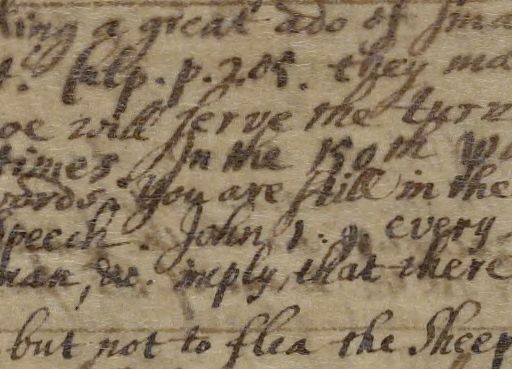 king a great ado of sma
t. fals p. p. 205. they ma
oe will serve the turn
times. In the 150th wi
words. You are still in the
speech. John, 1. 9. every
man, &c. imply, that there
but not to flea the Sheep